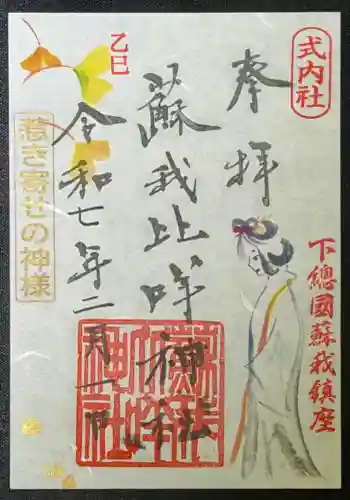 式内社
奉拝
下總國蘇我鎮座
蘇我比咩神社
乙巳
令和七年二月一日
惹き寄せの神様
蘇我比咩神社